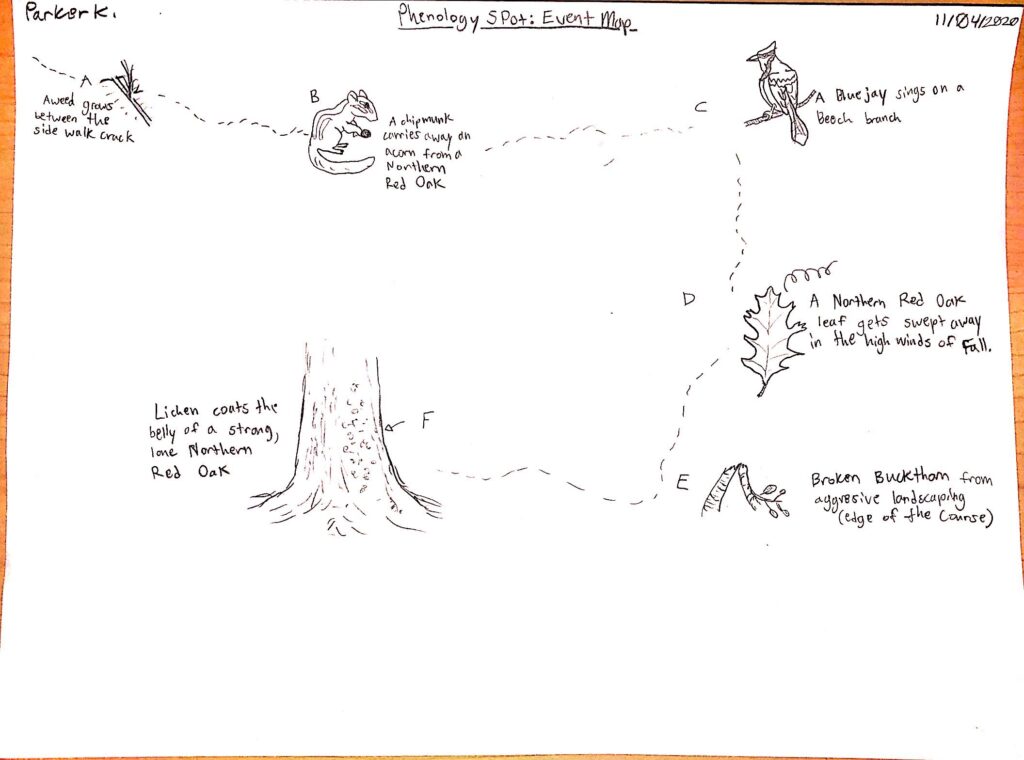 Parker K.
Phenology Spot: Event Map
11/04/2020
A
A weed grows
between the
side walk crack
B
A chipmunk
carries away an
acorn from a
Northern
Red Oak
C
A Bluejay sings on a
Beech branch
D
A Northern Red Oak
leaf gets swept away
in the high winds of Fall.
E
Broken Buckthorn from
aggresive landscaping
(edge of the Course)
F
Lichen coats the
belly of a strong,
lone Northern
Red Oak